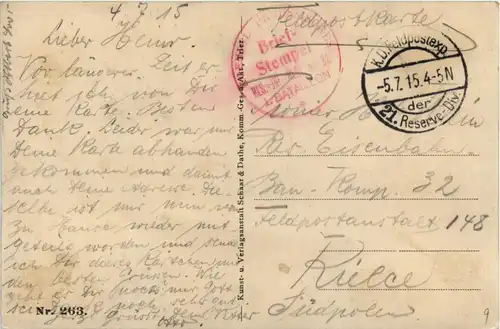 4.7.15
Lieber Heinr.
Vor längerer Zeit er-
hielt ich von Dir
eine Karte. Besten
Dank. Leider war mir
Deine Karte abhanden
gekommen und damit
auch Deine Adresse. Die-
selbe ist mir nun von
zu Hause wieder mit-
geteilt worden und sende
ich Dir dieses Kärtchen mit
den besten Grüssen. Wie
geht es Dir noch mir Gott
sei noch sehr gut.
Gruss Dein Vetter
Otto
Nr. 263.
Kunst- u. Verlagsanstalt Schaar & Dathe, Komm.-Ges. a. Akt., Trier
Feldpostkarte
Brief-
Stempel
BATAILLON
K.D. Feldpostexp.
-5.7.15.4-5N
der
21. Reserve-Div.
Pionier
Res. Eisenbahn-
Bau-Komp. 32
Feldpostanstalt 148
Kielce
Südpolen
9